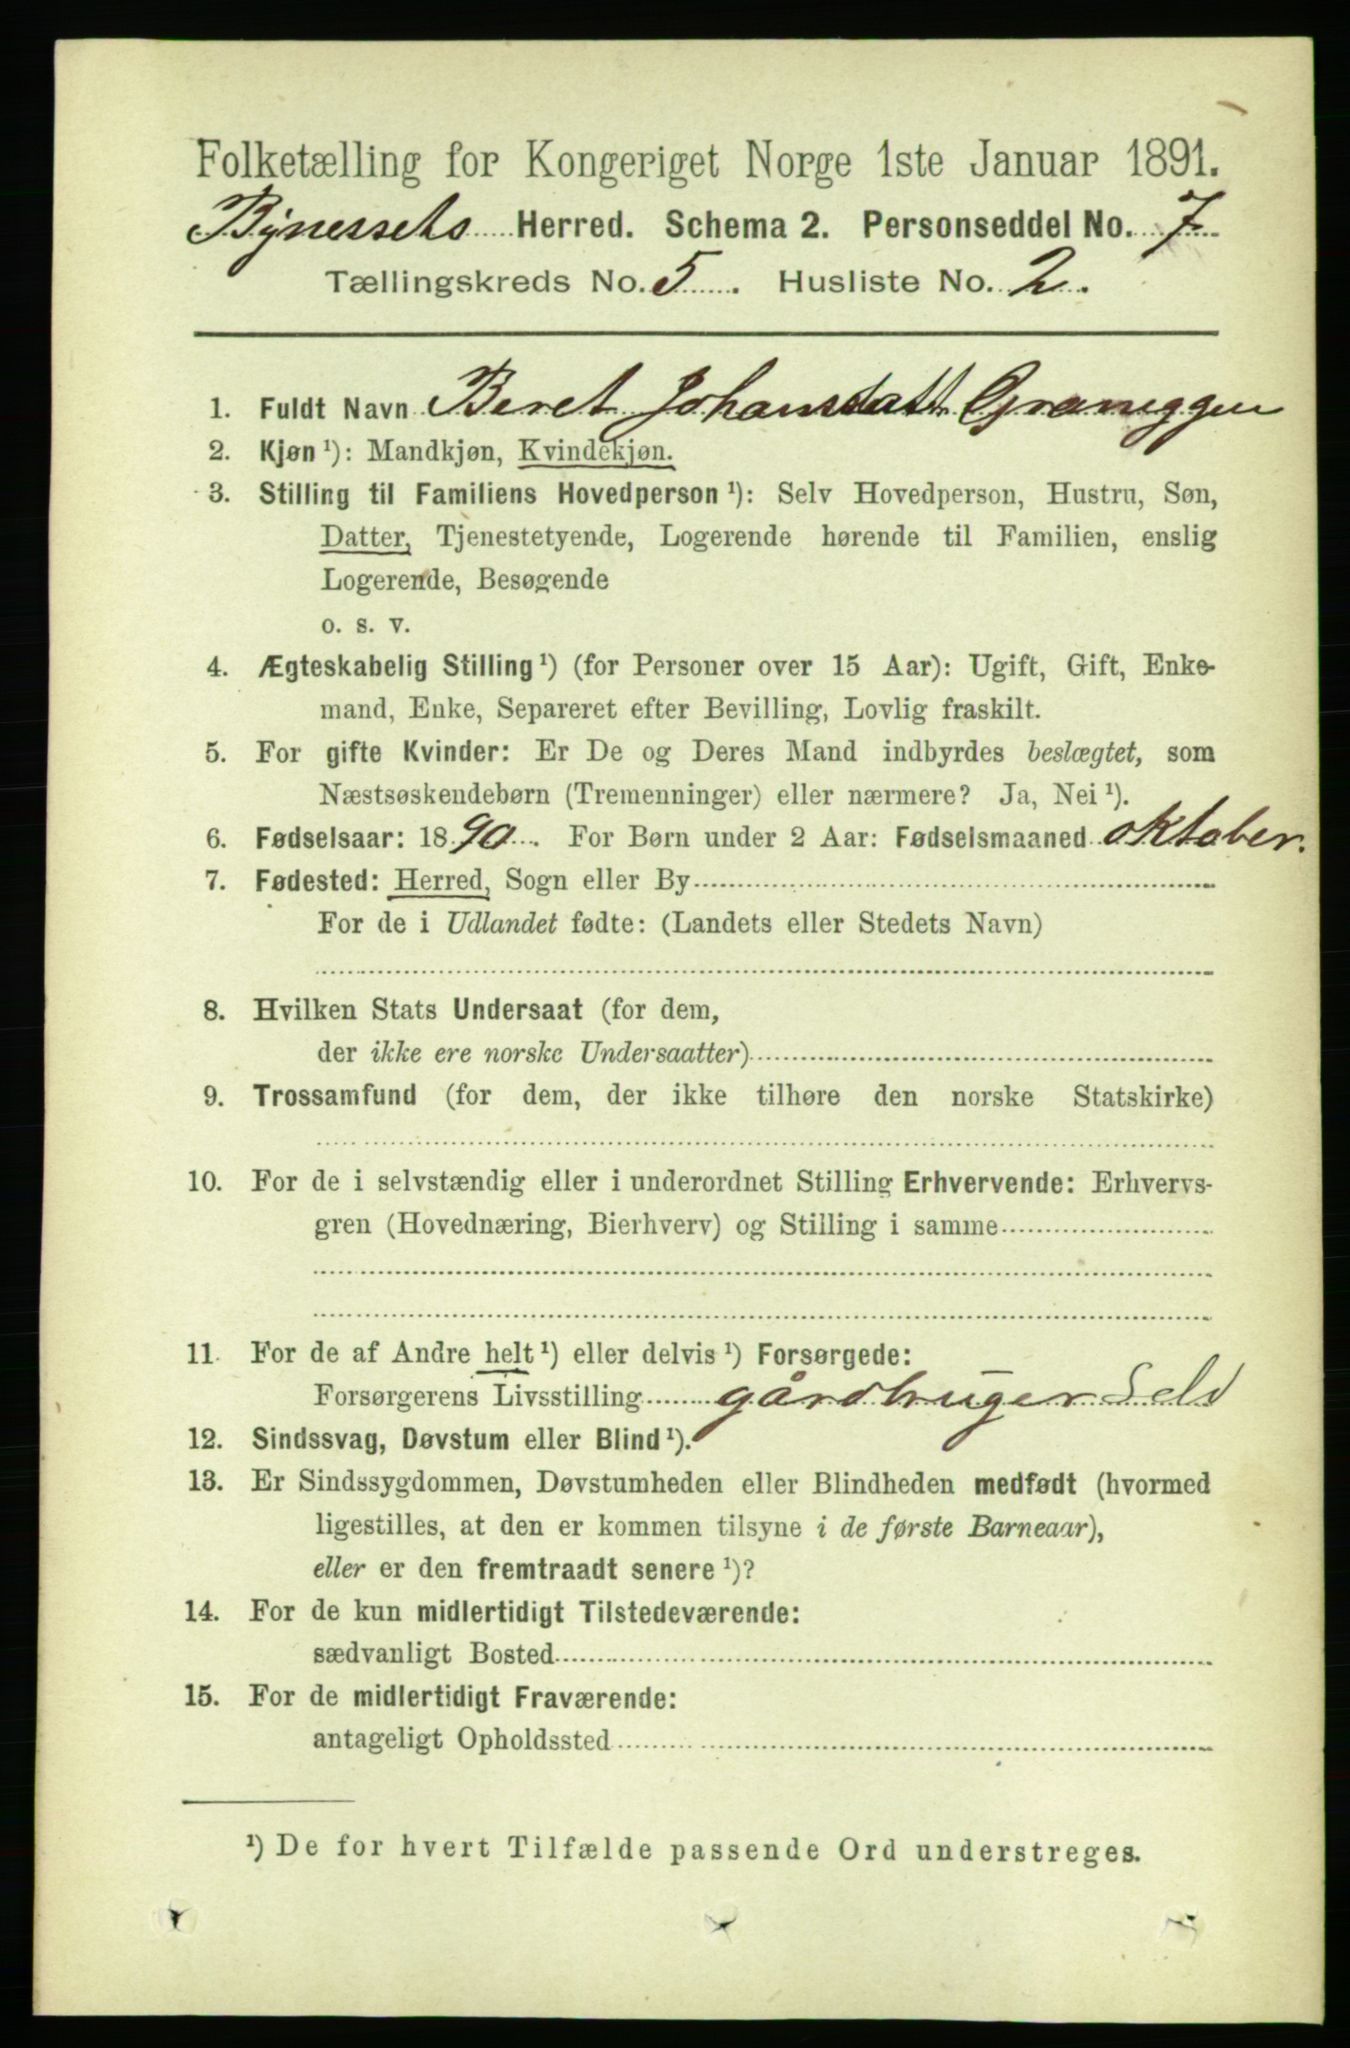 Folketælling for Kongeriget Norge 1ste Januar 1891.
Bynessets Herred. Schema 2. Personseddel No. 7
Tællingskreds No. 5. Husliste No. 2.
1. Fuldt Navn Beret Johansdatt Graneggen
2. Kjøn ¹): Mandkjøn, Kvindekjøn.
3. Stilling til Familiens Hovedperson ¹): Selv Hovedperson, Hustru, Søn,
Datter, Tjenestetyende, Logerende hørende til Familien, enslig
Logerende, Besøgende
o. s. v.
4. Ægteskabelig Stilling ¹) (for Personer over 15 Aar): Ugift, Gift, Enke-
mand, Enke, Separeret efter Bevilling, Lovlig fraskilt.
5. For gifte Kvinder: Er De og Deres Mand indbyrdes beslægtet, som
Næstsøskendebørn (Tremenninger) eller nærmere? Ja, Nei ¹).
6. Fødselsaar: 1890. For Børn under 2 Aar: Fødselsmaaned oktober.
7. Fødested: Herred, Sogn eller By
For de i Udlandet fødte: (Landets eller Stedets Navn)
8. Hvilken Stats Undersaat (for dem,
der ikke ere norske Undersaatter)
9. Trossamfund (for dem, der ikke tilhøre den norske Statskirke)
10. For de i selvstændig eller i underordnet Stilling Erhvervende: Erhvervs-
gren (Hovednæring, Bierhverv) og Stilling i samme
11. For de af Andre helt ¹) eller delvis ¹) Forsørgede:
Forsørgerens Livsstilling gårdbruger Selv
12. Sindssvag, Døvstum eller Blind ¹).
13. Er Sindssygdommen, Døvstumheden eller Blindheden medfødt (hvormed
ligestilles, at den er kommen tilsyne i de første Barneaar),
eller er den fremtraadt senere ¹)?
14. For de kun midlertidigt Tilstedeværende:
sædvanligt Bosted
15. For de midlertidigt Fraværende:
antageligt Opholdssted
¹) De for hvert Tilfælde passende Ord understreges.